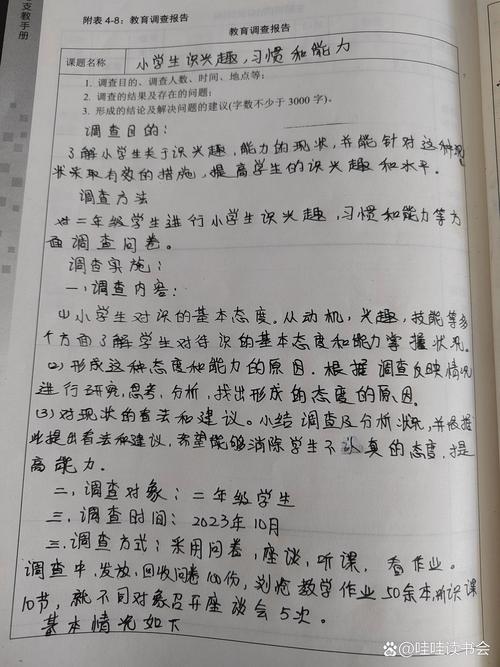 支教手册
附表 4-8：教育调查报告
教育调查报告
课题名称 小学生识兴趣，习惯和能力
1. 调查目的、调查人数、时间、地点等；
2. 调查的结果及存在的问题；
3. 形成的结论及解决问题的建议(字数不少于 3000 字)。
调查目的：
了解小学生关于识兴趣，能力的现状，并能针对这种现
状采取有效的措施，提高学生的识兴趣和水平。
调查方法
对二年级学生进行小学生识兴趣，习惯和能力等方
面调查问卷。
调查实施：
一，调查内容：
(1)小学生对识的基本态度。从动机，兴趣，技能等多
个方面了解学生对待识的基本态度和能力掌握状况。
(2)形成这种态度和能力的原因。根据调查反映情况
进行研究，思考，分析，找出形成的态度的原因。
(3)对现状的看法和建议。小结调查及分析状况，并依据
此提出看法和建议，希望能够消除学生不认真的态度，提
高能力。
二，调查对象：二年级学生
三，调查时间：2023年10月
三，调查方式：采用问卷，座谈，听课，查作业。
调查中，发放，回收问卷100份，教学作业50余本，听识课
10节，就不同对象召开座谈会5次。
基本情况如下
哇哇读书会